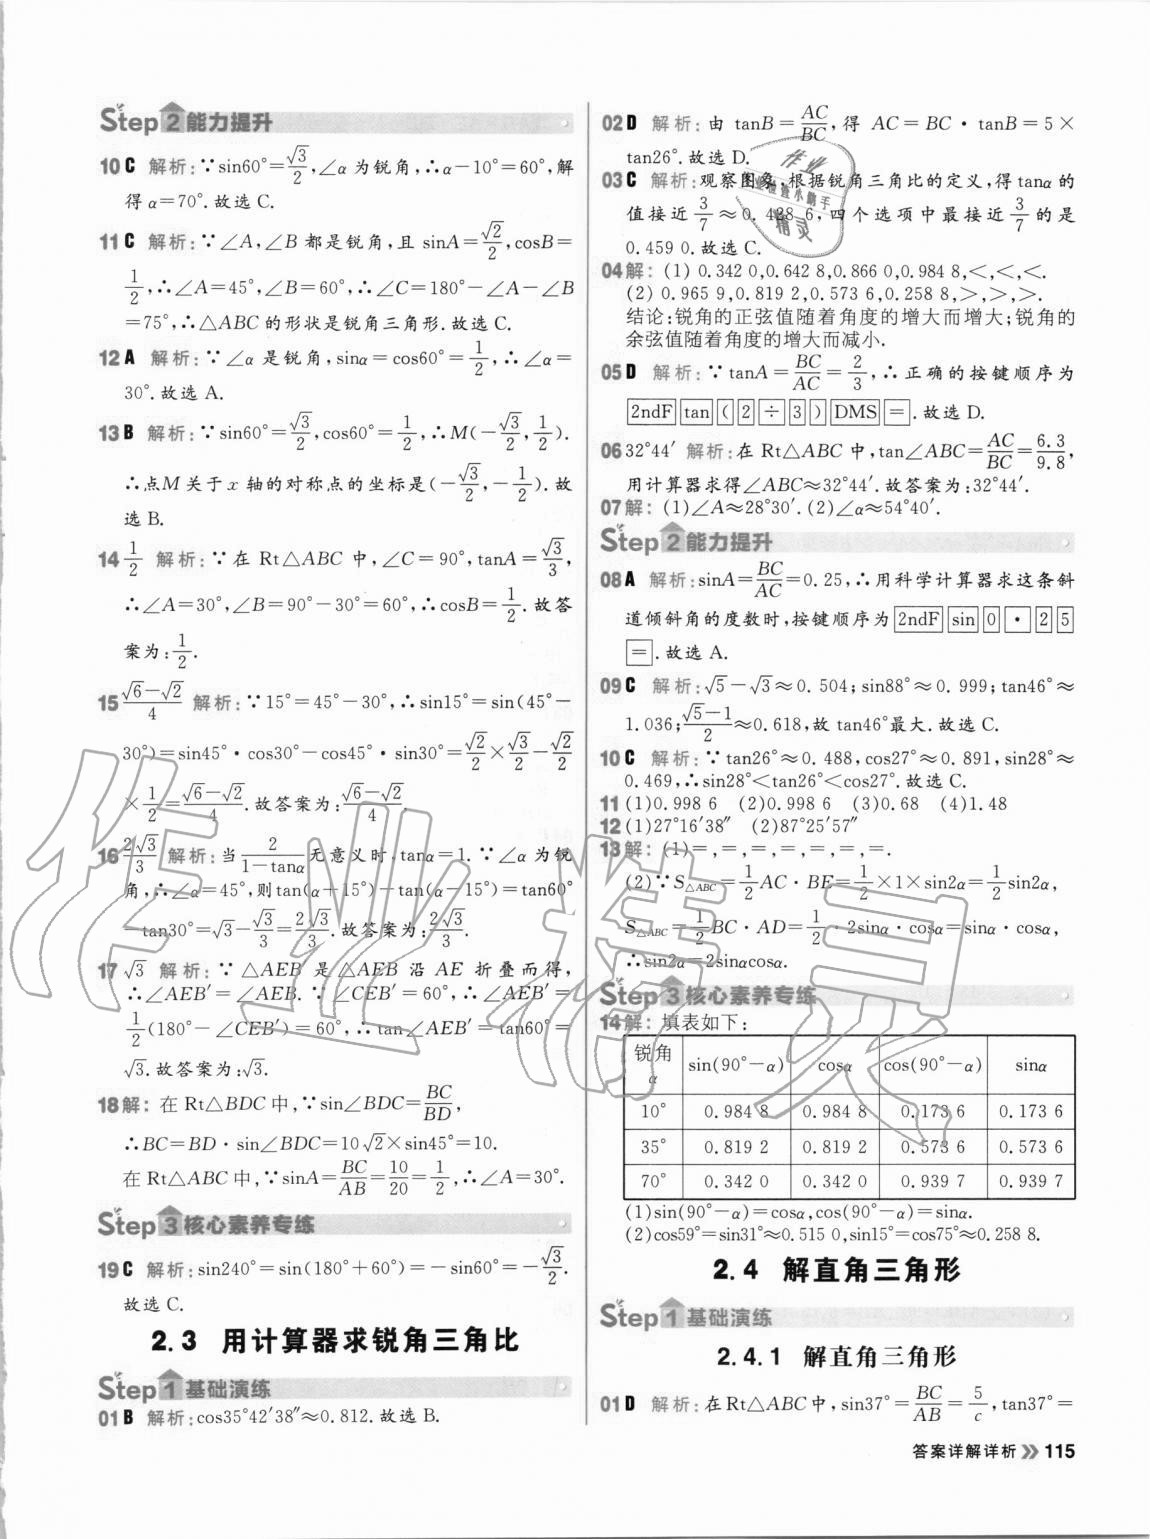 Step 2 能力提升
10 C 解析:∵sin60°=√3/2,∠α为锐角,∴α-10°=60°,解
得α=70°.故选C.
11 C 解析:∵∠A,∠B都是锐角,且sinA=√2/2,cosB=
1/2,∴∠A=45°,∠B=60°,∴∠C=180°-∠A-∠B
=75°,∴△ABC的形状是锐角三角形.故选C.
12 A 解析:∵∠α是锐角,sinα=cos60°=1/2,∴∠α=
30°.故选A.
13 B 解析:∵sin60°=√3/2,cos60°=1/2,∴M(-√3/2,1/2).
∴点M关于x轴的对称点的坐标是(-√3/2,-1/2).故
选B.
14 1/2 解析:∵在Rt△ABC中,∠C=90°,tanA=√3/3,
∴∠A=30°,∠B=90°-30°=60°,∴cosB=1/2.故答
案为:1/2.
15 (√6-√2)/4 解析:∵15°=45°-30°,∴sin15°=sin(45°-
30°)=sin45°·cos30°-cos45°·sin30°=√2/2×√3/2-√2/2
×1/2=(√6-√2)/4.故答案为:(√6-√2)/4.
16 2√3/3 解析:当2/(1-tanα)无意义时,tanα=1.∵∠α为锐
角,∴∠α=45°,则tan(α+15°)-tan(α-15°)=tan60°
-tan30°=√3-√3/3=2√3/3.故答案为:2√3/3.
17 √3 解析:∵△AEB′是△AEB沿AE折叠而得,
∴∠AEB′=∠AEB.∵∠CEB′=60°,∴∠AEB′=
1/2(180°-∠CEB′)=60°,∴tan∠AEB′=tan60°=
√3.故答案为:√3.
18 解:在Rt△BDC中,∵sin∠BDC=BC/BD,
∴BC=BD·sin∠BDC=10√2×sin45°=10.
在Rt△ABC中,∵sinA=BC/AB=10/20=1/2,∴∠A=30°.
Step 3 核心素养专练
19 C 解析:sin240°=sin(180°+60°)=-sin60°=-√3/2.
故选C.
2.3 用计算器求锐角三角比
Step 1 基础演练
01 B 解析:cos35°42′38″≈0.812.故选B.
02 D 解析:由tanB=AC/BC,得AC=BC·tanB=5×
tan26°.故选D.
03 C 解析:观察图象,根据锐角三角比的定义,得tanα的
值接近3/7≈0.428 6,四个选项中最接近3/7的是
0.459 0.故选C.
04 解:(1)0.342 0,0.642 8,0.866 0,0.984 8,<,<,<.
(2)0.965 9,0.819 2,0.573 6,0.258 8,>,>,>.
结论:锐角的正弦值随着角度的增大而增大;锐角的
余弦值随着角度的增大而减小.
05 D 解析:∵tanA=BC/AC=2/3,∴正确的按键顺序为
2ndF tan ( 2 ÷ 3 ) DMS =.故选D.
06 32°44′ 解析:在Rt△ABC中,tan∠ABC=AC/BC=6.3/9.8,
用计算器求得∠ABC≈32°44′.故答案为:32°44′.
07 解:(1)∠A≈28°30′.(2)∠α≈54°40′.
Step 2 能力提升
08 A 解析:sinA=BC/AC=0.25,∴用科学计算器求这条斜
道倾斜角的度数时,按键顺序为2ndF sin 0 · 2 5
=.故选A.
09 C 解析:√5-√3≈0.504;sin88°≈0.999;tan46°≈
1.036;(√5-1)/2≈0.618,故tan46°最大.故选C.
10 C 解析:∵tan26°≈0.488,cos27°≈0.891,sin28°≈
0.469,∴sin28°<tan26°<cos27°.故选C.
11 (1)0.998 6 (2)0.998 6 (3)0.68 (4)1.48
12 (1)27°16′38″ (2)87°25′57″
13 解:(1)=,=,=,=,=,=,=.
(2)∵S△ABC=1/2AC·BE=1/2×1×sin2α=1/2sin2α,
S△ABC=1/2BC·AD=1/2·2sinα·cosα=sinα·cosα,
∴sin2α=2sinαcosα.
Step 3 核心素养专练
14 解:填表如下:
锐角α sin(90°-α) cosα cos(90°-α) sinα
10° 0.984 8 0.984 8 0.173 6 0.173 6
35° 0.819 2 0.819 2 0.573 6 0.573 6
70° 0.342 0 0.342 0 0.939 7 0.939 7
(1)sin(90°-α)=cosα,cos(90°-α)=sinα.
(2)cos59°=sin31°≈0.515 0,sin15°=cos75°≈0.258 8.
2.4 解直角三角形
Step 1 基础演练
2.4.1 解直角三角形
01 D 解析:在Rt△ABC中,sin37°=BC/AB=5/c,tan37°=
答案详解详析 115
作业精灵